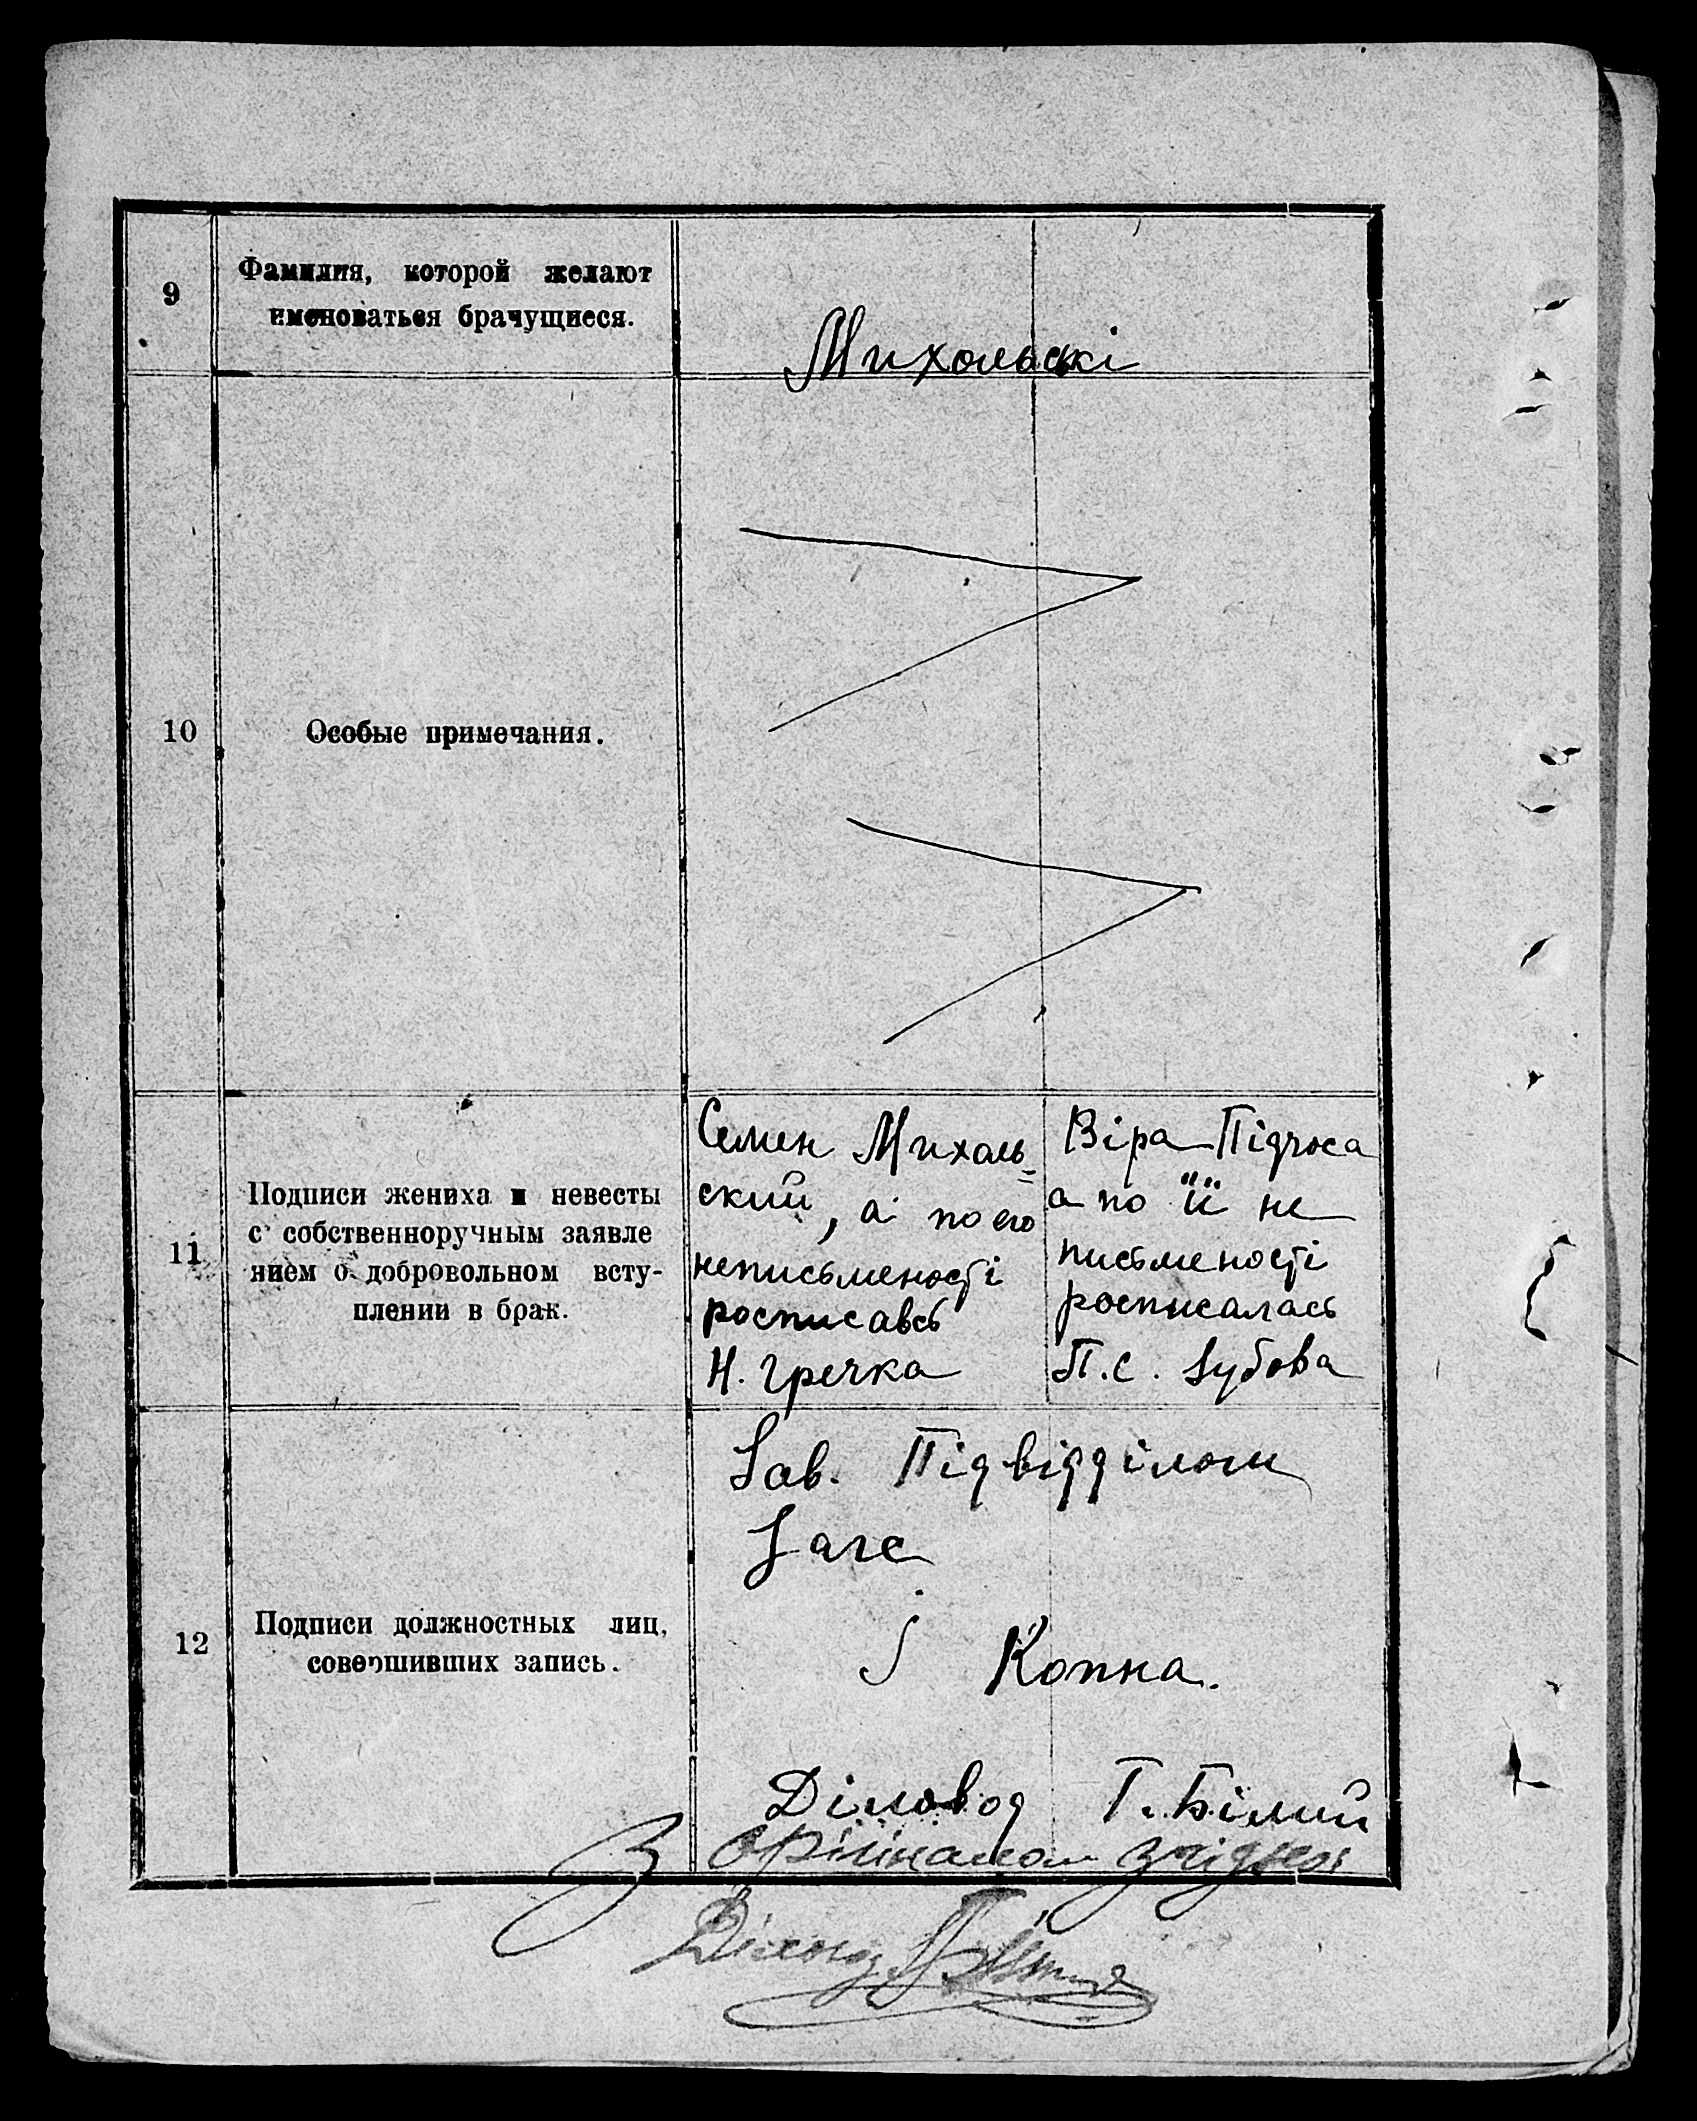 9
Фамилия, которой желают
именоваться брачущиеся.
Михольскі
10
Особые примечания.
11
Подписи жениха и невесты
с собственноручным заявле
нием о добровольном всту-
плении в брак.
Семен Михоль=
ский, а по его
неписьмености
росписавсь
Н. Гречка
Віра Підчоса
а по її не
письмености
росписалась
П.С. Зубова
12
Подписи должностных лиц,
совершивших запись.
Зав. Підвідділом
Загс
Копна.
Діловод Г. Білий
З оріиіналом згідно:
Діловод Г. Білий